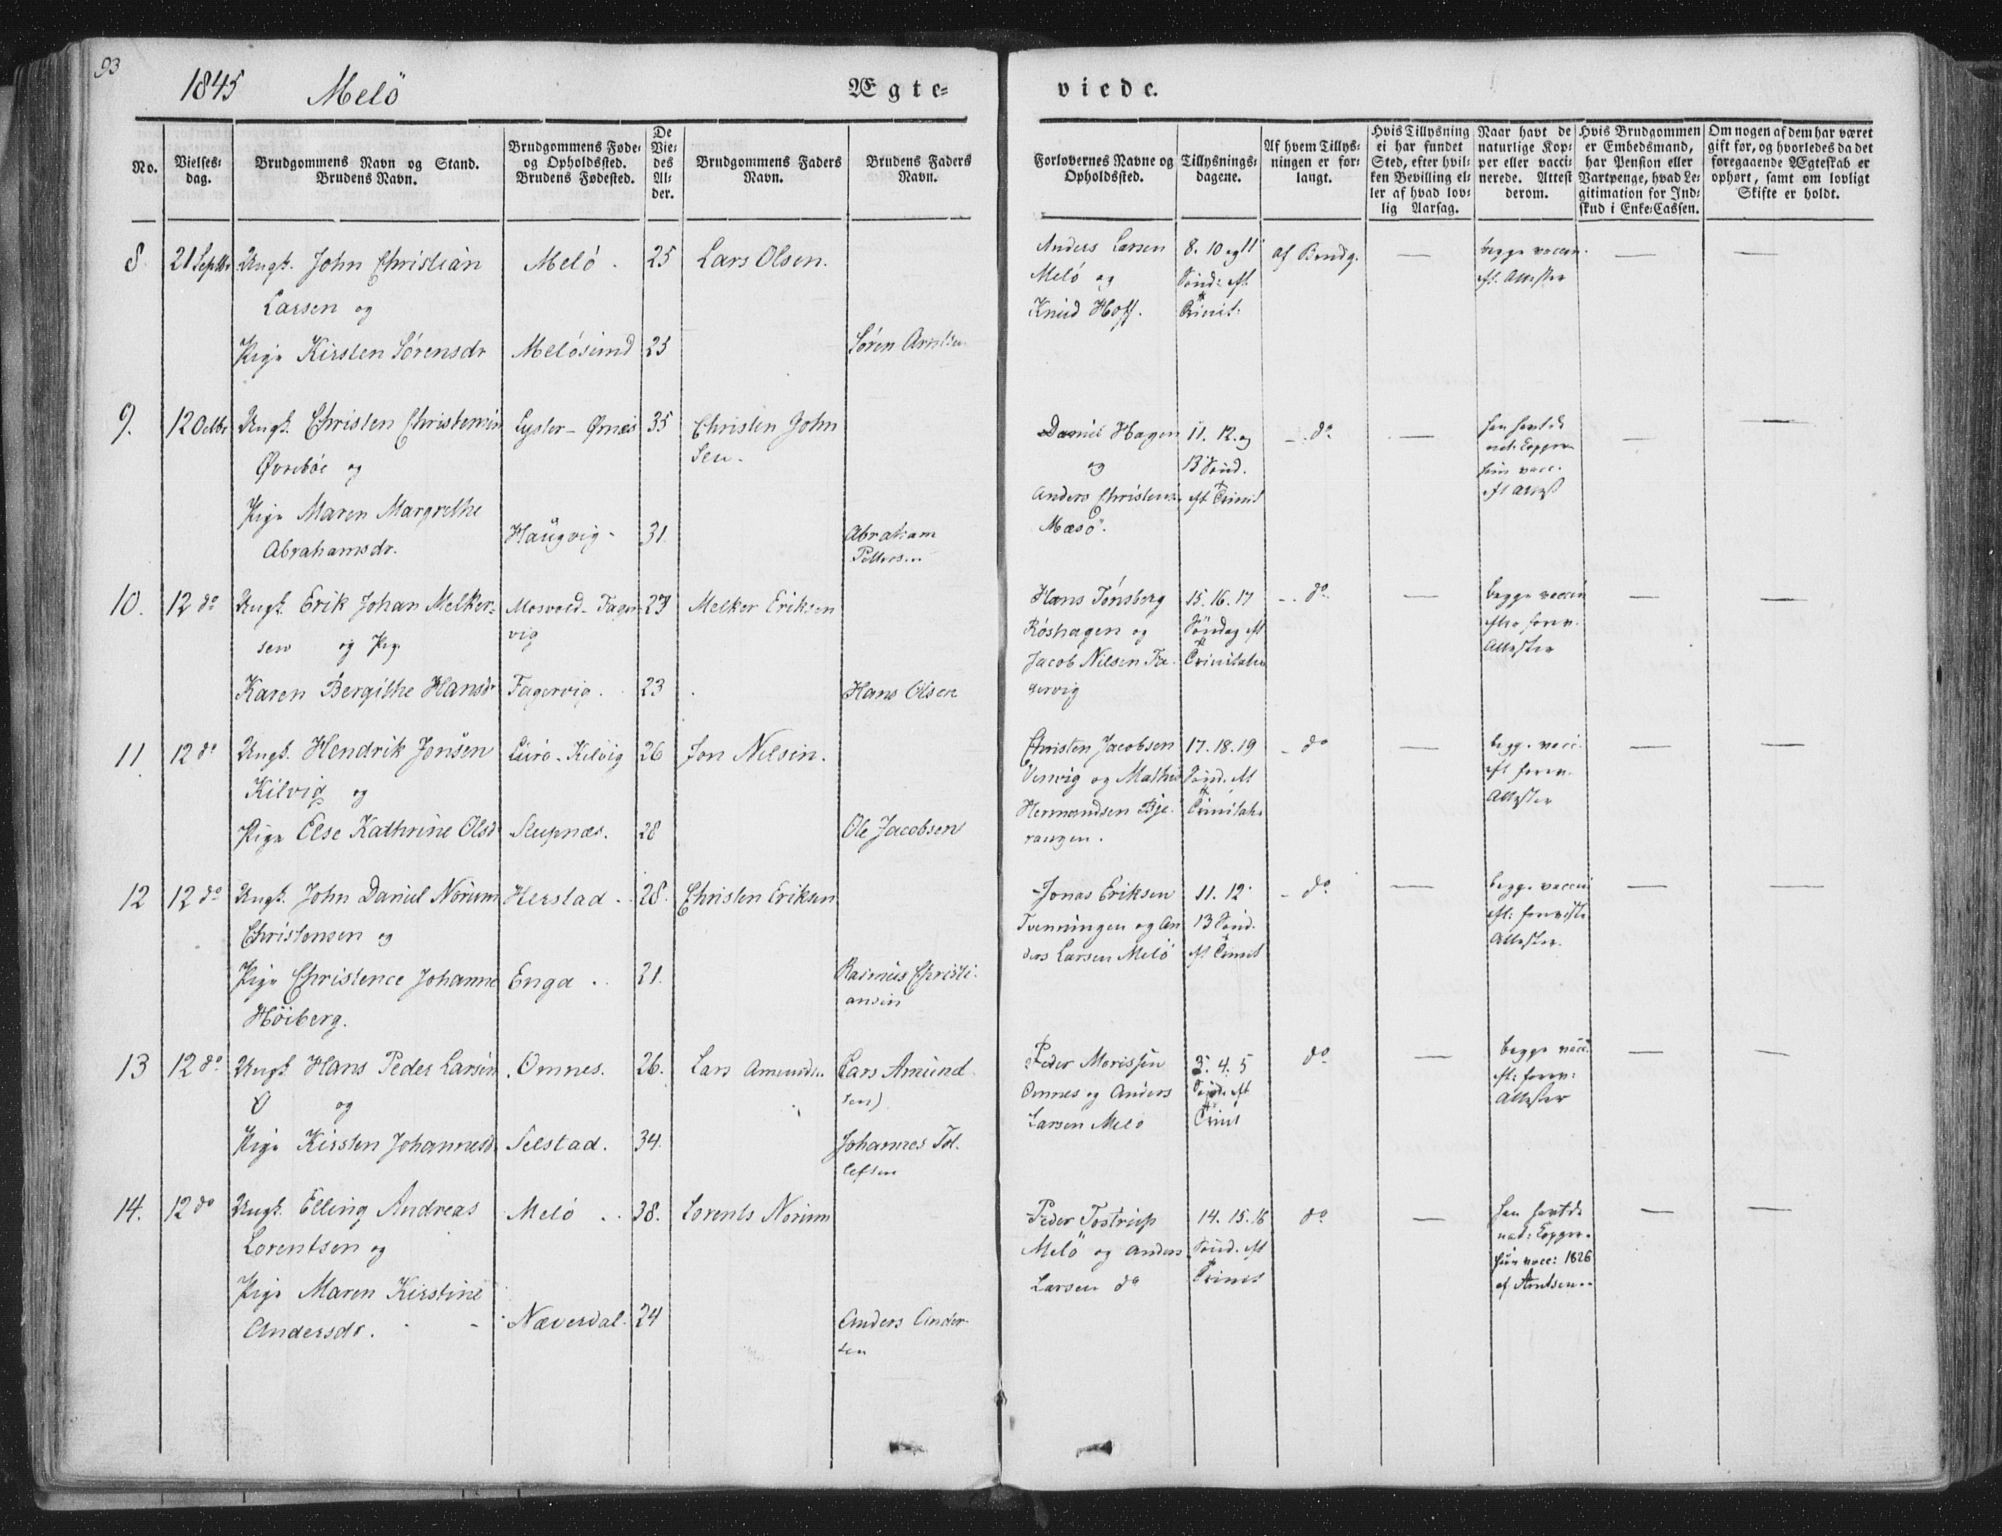 93
1845 Melö
Ægte= viede.
No.
Vielses=
dag.
Brudgommens Navn og Stand.
Brudens Navn.
Brudgommens Føde=
og Opholdssted.
Brudens Fødested.
De
Vie=
des
Al=
der.
Brudgommens Faders
Navn.
Brudens Faders
Navn.
Forlovernes Navne og
Opholdssted.
Tillysnings=
dagene.
Af hvem Tillys=
ningen er for=
langt.
Hvis Tillysning
ei har fundet
Sted, efter hvil=
ken Bevilling el=
ler af hvad lov=
lig Aarsag.
Naar havt de
naturlige Kop=
per eller vacci=
nerede. Attest
derom.
Hvis Brudgommen
er Embedsmand,
har Pension eller
Vartpenge, hvad Le=
gitimation for Ind=
skud i Enke=Cassen.
Om nogen af dem har været
gift før, og hvorledes da det
foregaaende Ægteskab er
ophørt, samt om lovligt
Skifte er holdt.
8. 21 Septbr Ungk. John Christian Melö. 25 Lars Olsen.
Larsen og
Pige Kirsten Sörensdr Melösund 25 Sören Arntsen
Anders Larsen 8. 10 og 11 af Brudg. — begge vaccin. — —
Melö og Sönd: eft eft. Attester
Knud Hoff. Trinit:
9. 12 Octbr Ungk. Christen Christensen Lyster - Örnæs 35 Christen John
Övreböe og sen.
Pige Maren Margrethe
Abrahamsdr. Haugvig - 31 Abraham
Pettersen
Daniel Hagen 11. 12. og - do — han havt de — —
og 13 Sönd. nat: Kopper
Anders Christens. eft Trinit hun vacc.
Mæsö. eft attest
10. 12 do Ungk. Erik Johan Melker= Mosvold - Fager 27 Melker Eriksen
sen og Pig vig
Karen Bergithe Hansdr Fagervig. 23 Hans Olsen
Hans Tönsberg 15. 16. 17 - do — begge vaccin — —
Röshagen og Söndag eft efter forev.
Jacob Nilsen Fa- Trinitatis Attester
gervig
11. 12 do Ungk. Hendrik Jonsen Lurö - Kilvig 26 Jon Nilsen.
Kilvig og
Pige Else Kathrine Olsdr Stupnæs. 28 Ole Jacobsen
Christen Jacobsen 17. 18. 19 - do — begge vacci. — —
og Mathis Sönd. eft eft forev.
Hermandsen Bje- Trinitatis Attester
rangen.
12 12 do Ungk. John Daniel Norum Herstad 28. Christen Eriksen
Christensen og
Pige Christence Johanne Enga 21. Rasmus Christi-
Höiberg. ansen
Jonas Eriksen 11. 12. - do — begge vaccin — —
Tvenningen og An 13 Sönd. eft: foreviste
ders Larsen Melö eft Trinit Attester.
13 12 do Ungk. Hans Peder Larsen Omnes. 26. Lars Amundsen Lars Amund-
og sen)
Pige Kirsten Johannesdr Selstad. 34. Johannes Tol-
lefsen
Peder Morissen 3. 4. 5 do — begge vacc. — —
Omnes og Anders Sönd. eft eft: forev:
Larsen Melö Trinit Attester
14. 12 do Ungk. Elling Andreas Melö 38. Lorents Norum
Lorentsen og
Pige Maren Kirstine
Andersdr. Næverdal. 24 Anders Ander-
sen
Peder Tostrup 14. 15. 16 do — han havt de — —
Melö og Anders Sönd. eft nat: Kopper.
Larsen do Trinit hun vacc: 1826
af Arntsen